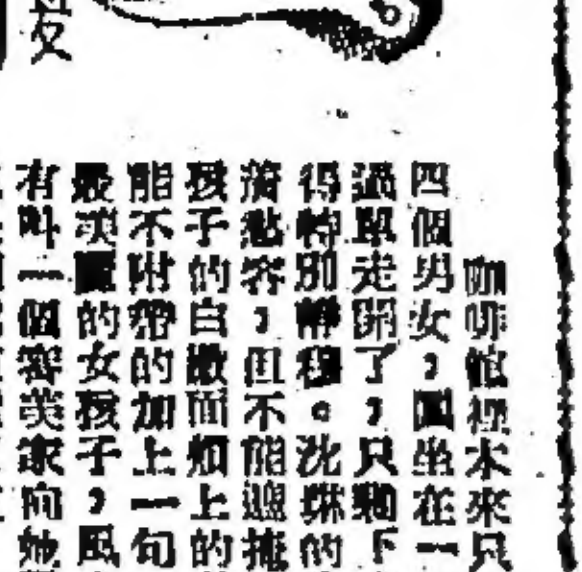 咖啡館裡本來只
四個男女，圍坐在一
過單走開了，只剩下
得特別靜寂。沈琳的
着愁容，但不能遮掩
孩子的白嫩面頰上的
能不附帶的加上一句
最美麗的女孩子，風
有叫一個審美家向她
友